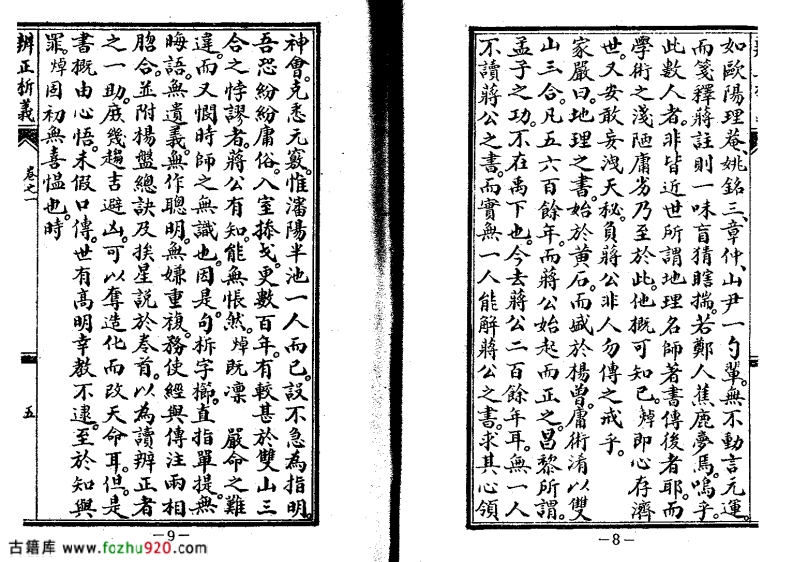 如歐陽理菴、姚銘三、章仲山、尹一勺輩。無不動言元運。
而箋釋蔣註則一味盲猜瞎揣。若鄭人蕉鹿夢焉。嗚乎。
此數人者。非皆近世所謂地理名師著書傳後者耶。而
學術之淺陋庸劣乃至於此。他概可知已。焯即心存濟
世。又安敢妄洩天秘。負蔣公非人勿傳之戒乎。
家嚴曰。地理之書。始於黃石。而盛於楊曾。庸術淆以雙
山三合。凡五六百餘年。而蔣公始起而正之。昌黎所謂。
孟子之功。不在禹下也。今去蔣公二百餘年耳。無一人
不讀蔣公之書。而實無一人能解蔣公之書。求其心領
—8—
神會。克悉元竅。惟瀋陽半池一人而已。設不急為指明。
吾恐紛紛庸俗。入室操戈。更數百年。有較甚於雙山三
合之悖謬者。蔣公有知。能無悵然。焯既凜 嚴命之難
違。而又憫時師之無識也。因是。句析字櫛。直指單提。無
晦語。無遺義。無作聰明。無嫌重複。務使經與傳注兩相
脗合。並附楊盤總訣及挨星說於卷首。以為讀辨正者
之一助。庶幾趨吉避凶。可以奪造化而改天命耳。但。是
書概由心悟。未假口傳。世有高明。幸教不逮。至於知與
罪。焯固初無喜慍也。時
辨正析義
卷之一
五
—9—
古籍库 www.fozhu920.com